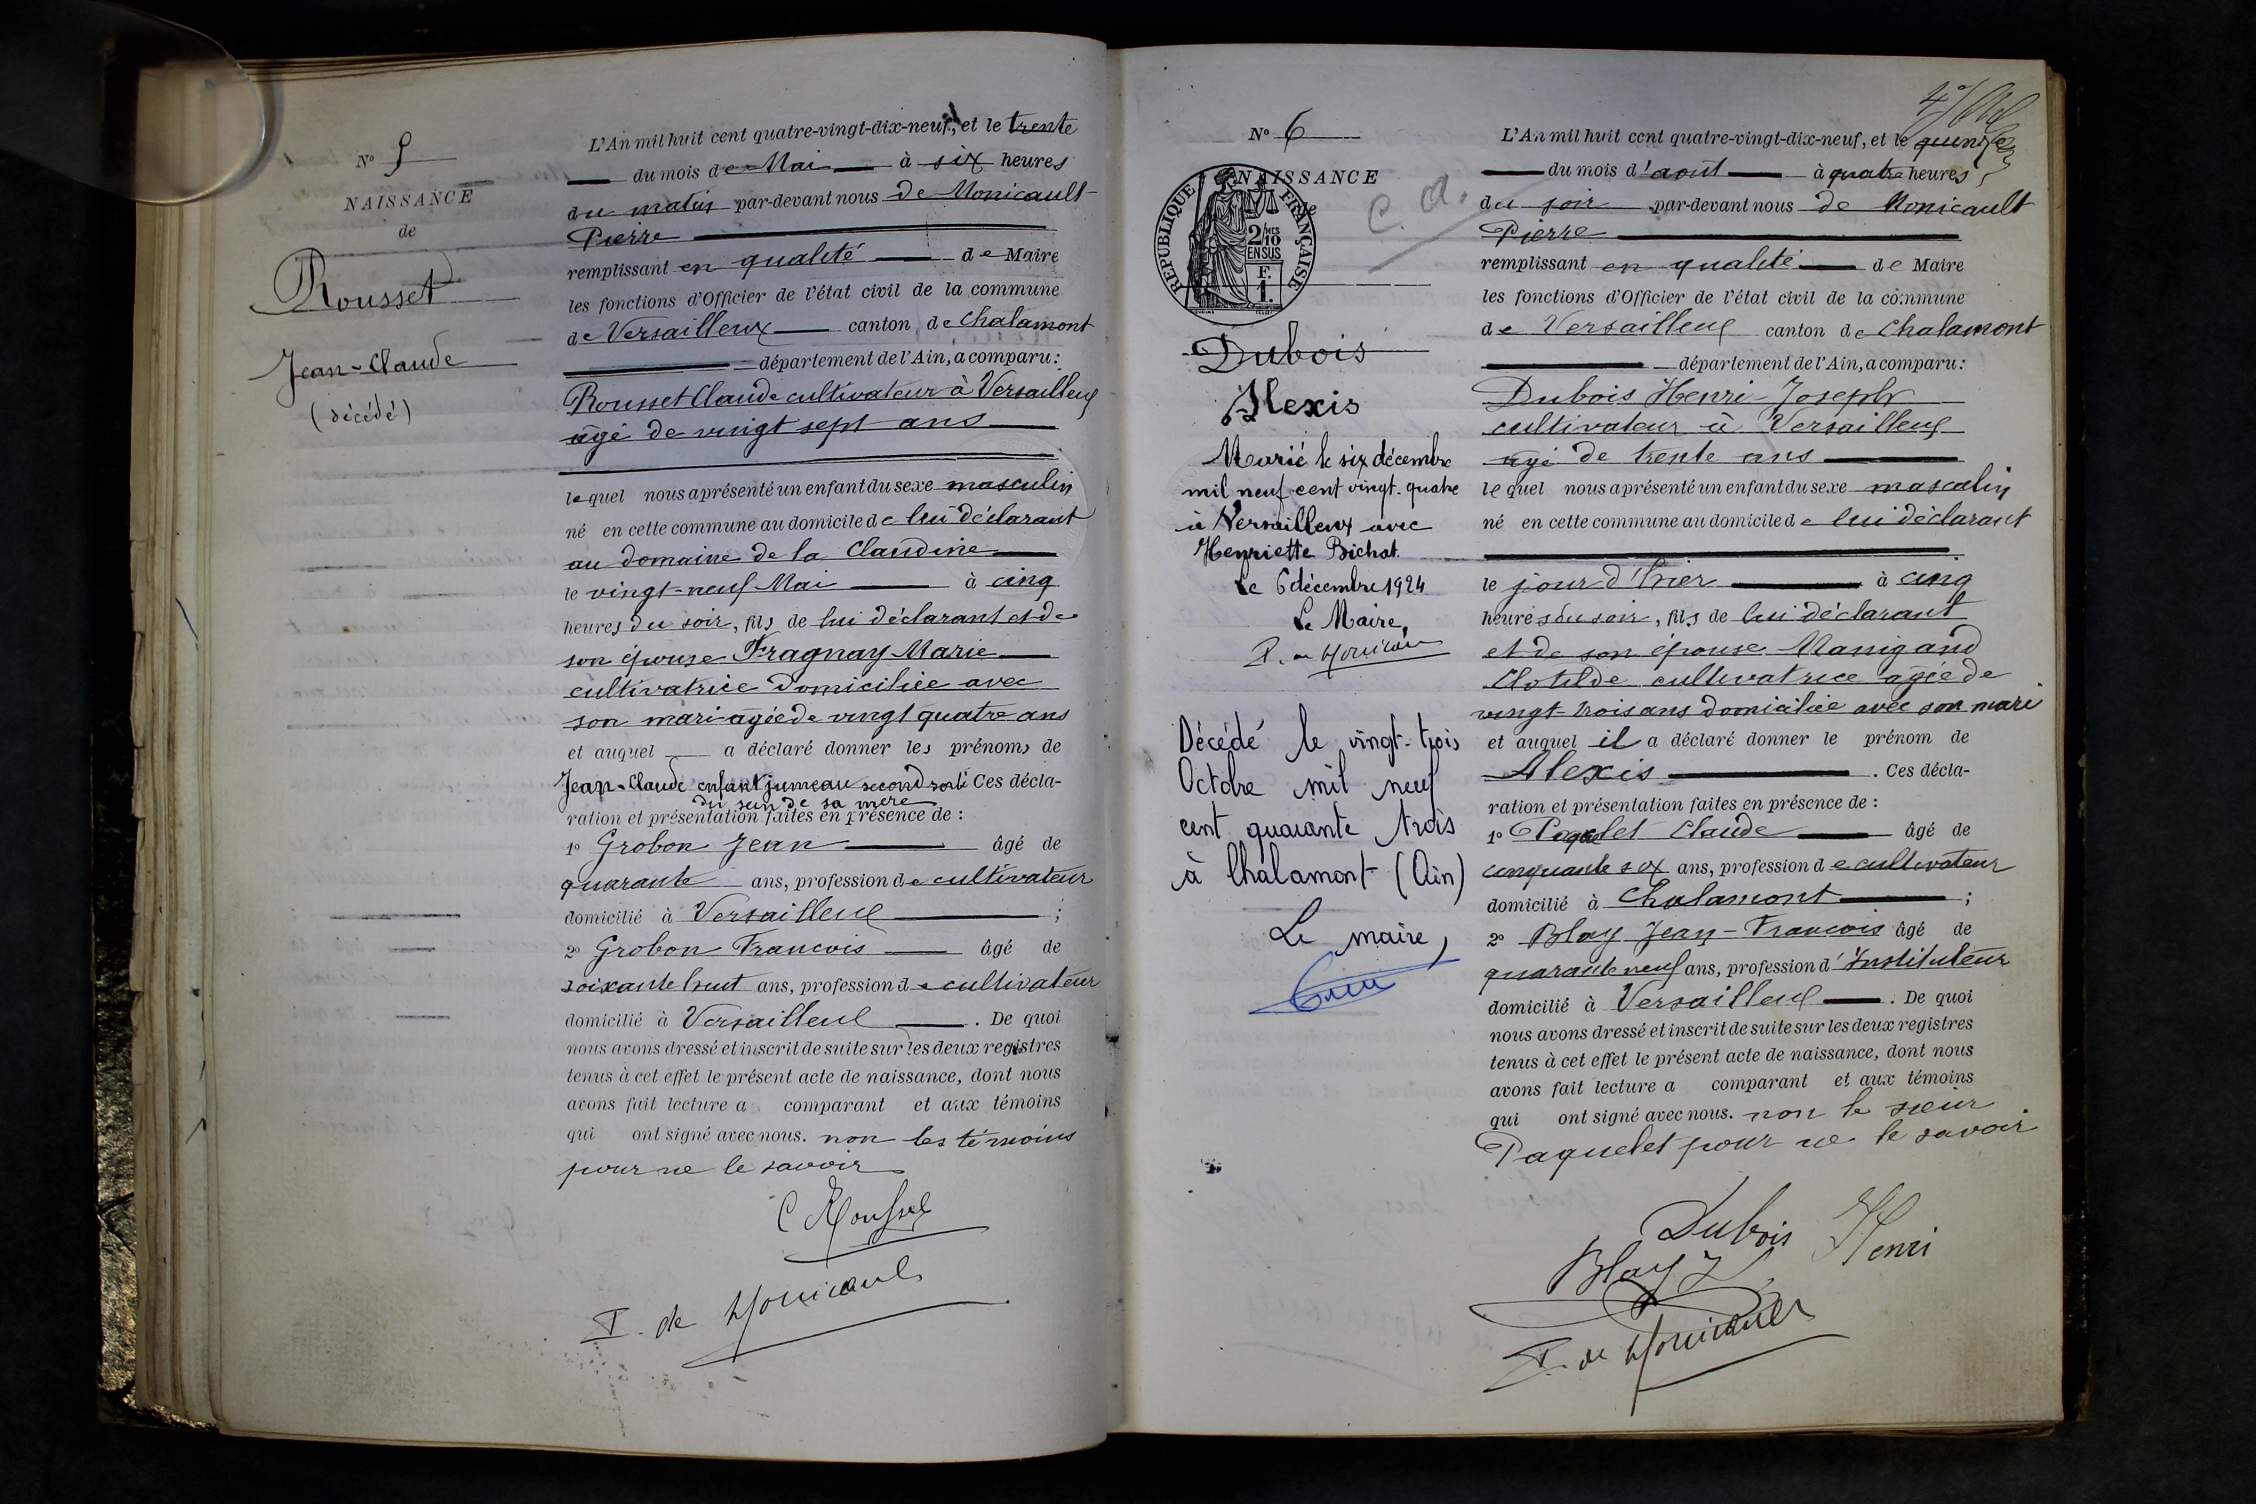 N° 5
NAISSANCE
de
Rousset
Jean-Claude
(décédé)
L'An mil huit cent quatre-vingt-dix-neuf, et le trente
du mois de Mai à six heures
du matin par-devant nous de Monicault
Pierre
remplissant en qualité de Maire
les fonctions d'Officier de l'état civil de la commune
de Versailleux canton de Chalamont
département de l'Ain, a comparu :
Rousset Claude cultivateur à Versailleux
âgé de vingt sept ans
lequel nous a présenté un enfant du sexe masculin
né en cette commune au domicile de lui déclarant
au domaine de la Claudine
le vingt-neuf Mai à cinq
heures du soir, fils de lui déclarant et de
son épouse Fragnay Marie
cultivatrice domiciliée avec
son mari âgée de vingt quatre ans
et auquel a déclaré donner les prénoms de
Jean-Claude enfant jumeau second sorti Ces décla-
du sein de sa mère
ration et présentation faites en présence de :
1° Grobon Jean âgé de
quarante ans, profession de cultivateur
domicilié à Versailleux ;
2° Grobon Francois âgé de
soixante huit ans, profession de cultivateur
domicilié à Versailleux . De quoi
nous avons dressé et inscrit de suite sur les deux registres
tenus à cet effet le présent acte de naissance, dont nous
avons fait lecture a comparant et aux témoins
qui ont signé avec nous. non les témoins
pour ne le savoir
C Rousset
P. de Monicault
N° 6
NAISSANCE
de
RÉPUBLIQUE FRANÇAISE
2/10 MES
EN SUS
F.
1.
C. a.
Dubois
Alexis
Marié le six décembre
mil neuf cent vingt-quatre
à Versailleux avec
Henriette Bichat.
Le 6 décembre 1924
Le Maire,
P. de Monicault
Décédé le vingt-trois
Octobre mil neuf
cent quarante trois
à Chalamont (Ain)
Le maire,
L'An mil huit cent quatre-vingt-dix-neuf, et le quinze
du mois d'août à quatre heures
du soir par-devant nous de Monicault
Pierre
remplissant en qualité de Maire
les fonctions d'Officier de l'état civil de la commune
de Versailleux canton de Chalamont
département de l'Ain, a comparu :
Dubois Henri-Joseph
cultivateur à Versailleux
âgé de trente ans
lequel nous a présenté un enfant du sexe masculin
né en cette commune au domicile de lui déclarant
le jour d'hier à cinq
heures du soir, fils de lui déclarant
et de son épouse Manigand
Clotilde cultivatrice âgée de
vingt-trois ans domiciliée avec son mari
et auquel il a déclaré donner le prénom de
Alexis . Ces décla-
ration et présentation faites en présence de :
1° Paquelet Claude âgé de
cinquante six ans, profession de cultivateur
domicilié à Chalamont ;
2° Blay Jean-Francois âgé de
quarante neuf ans, profession d'Instituteur
domicilié à Versailleux . De quoi
nous avons dressé et inscrit de suite sur les deux registres
tenus à cet effet le présent acte de naissance, dont nous
avons fait lecture a comparant et aux témoins
qui ont signé avec nous. non le sieur
Paquelet pour ne le savoir
Dubois Henri
Blay J
P. de Monicault